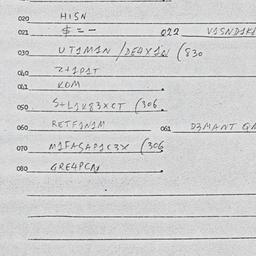 020 HISN
021 $ = - 022 V1SND1K
030 UT1M1N /DE4X1N (830
040 Z+1P1T
041 KOM
050 S+L1K83XCT (306
060 RETF1N1M 061 D3MANT
070 M1FASAP1C3X (306
080 GRE4PCN